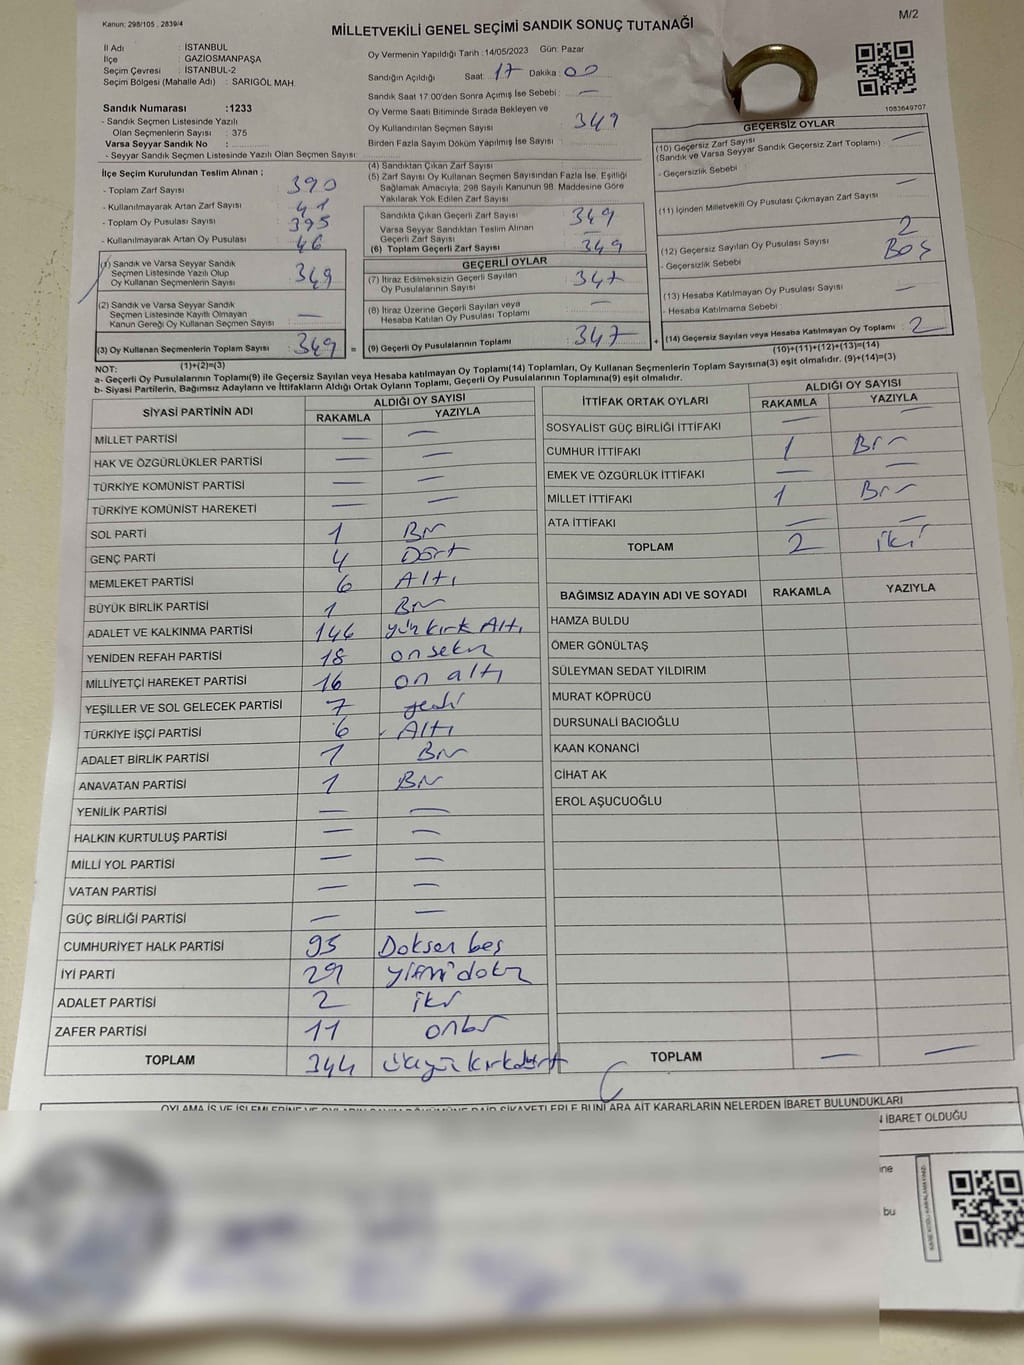 Kanun: 298/105 , 2839/4
MİLLETVEKİLİ GENEL SEÇİMİ SANDIK SONUÇ TUTANAĞI
M/2
İl Adı : İSTANBUL
İlçe : GAZİOSMANPAŞA
Seçim Çevresi : İSTANBUL-2
Seçim Bölgesi (Mahalle Adı) : SARIGÖL MAH.
Sandık Numarası :1233
- Sandık Seçmen Listesinde Yazılı
Olan Seçmenlerin Sayısı : 375
Varsa Seyyar Sandık No :
- Seyyar Sandık Seçmen Listesinde Yazılı Olan Seçmen Sayısı :
Oy Vermenin Yapıldığı Tarih :14/05/2023 Gün: Pazar
Sandığın Açıldığı Saat: 17 Dakika: 00
Sandık Saat 17:00'den Sonra Açımış İse Sebebi : —
Oy Verme Saati Bitiminde Sırada Bekleyen ve
Oy Kullandırılan Seçmen Sayısı : 349
Birden Fazla Sayım Döküm Yapılmış İse Sayısı :
1083649707
İlçe Seçim Kurulundan Teslim Alınan ;
- Toplam Zarf Sayısı : 390
- Kullanılmayarak Artan Zarf Sayısı : 41
- Toplam Oy Pusulası Sayısı : 395
- Kullanılmayarak Artan Oy Pusulası : 46
(1) Sandık ve Varsa Seyyar Sandık
Seçmen Listesinde Yazılı Olup
Oy Kullanan Seçmenlerin Sayısı : 349
(2) Sandık ve Varsa Seyyar Sandık
Seçmen Listesinde Kayıtlı Olmayan
Kanun Gereği Oy Kullanan Seçmen Sayısı : —
(3) Oy Kullanan Seçmenlerin Toplam Sayısı : 349 =
(1)+(2)=(3)
(4) Sandıktan Çıkan Zarf Sayısı :
(5) Zarf Sayısı Oy Kullanan Seçmen Sayısından Fazla İse, Eşitliği
Sağlamak Amacıyla; 298 Sayılı Kanunun 98. Maddesine Göre
Yakılarak Yok Edilen Zarf Sayısı :
Sandıkta Çıkan Geçerli Zarf Sayısı : 349
Varsa Seyyar Sandıktan Teslim Alınan
Geçerli Zarf Sayısı : —
(6) Toplam Geçerli Zarf Sayısı : 349
GEÇERLİ OYLAR
(7) İtiraz Edilmeksizin Geçerli Sayılan
Oy Pusulalarının Sayısı : 347
(8) İtiraz Üzerine Geçerli Sayılan veya
Hesaba Katılan Oy Pusulası Toplamı : —
(9) Geçerli Oy Pusulalarının Toplamı : 347 +
GEÇERSİZ OYLAR
(10) Geçersiz Zarf Sayısı : —
(Sandık ve Varsa Seyyar Sandık Geçersiz Zarf Toplamı)
- Geçersizlik Sebebi :
(11) İçinden Milletvekili Oy Pusulası Çıkmayan Zarf Sayısı : —
(12) Geçersiz Sayılan Oy Pusulası Sayısı : 2
- Geçersizlik Sebebi : Boş
(13) Hesaba Katılmayan Oy Pusulası Sayısı : —
- Hesaba Katılmama Sebebi :
(14) Geçersiz Sayılan veya Hesaba Katılmayan Oy Toplamı : 2
(10)+(11)+(12)+(13)=(14)
NOT:
a- Geçerli Oy Pusulalarının Toplamı(9) ile Geçersiz Sayılan veya Hesaba katılmayan Oy Toplamı(14) Toplamları, Oy Kullanan Seçmenlerin Toplam Sayısına(3) eşit olmalıdır. (9)+(14)=(3)
b- Siyasi Partilerin, Bağımsız Adayların ve İttifakların Aldığı Ortak Oyların Toplamı, Geçerli Oy Pusulalarının Toplamına(9) eşit olmalıdır.
SİYASİ PARTİNİN ADI ALDIĞI OY SAYISI
RAKAMLA YAZIYLA
MİLLET PARTİSİ — —
HAK VE ÖZGÜRLÜKLER PARTİSİ — —
TÜRKİYE KOMÜNİST PARTİSİ — —
TÜRKİYE KOMÜNİST HAREKETİ — —
SOL PARTİ 1 Bir
GENÇ PARTİ 4 Dört
MEMLEKET PARTİSİ 6 Altı
BÜYÜK BİRLİK PARTİSİ 1 Bir
ADALET VE KALKINMA PARTİSİ 146 yüz kırk Altı
YENİDEN REFAH PARTİSİ 18 onsekiz
MİLLİYETÇİ HAREKET PARTİSİ 16 on altı
YEŞİLLER VE SOL GELECEK PARTİSİ 7 yedi
TÜRKİYE İŞÇİ PARTİSİ 6 Altı
ADALET BİRLİK PARTİSİ 1 Bir
ANAVATAN PARTİSİ 1 Bir
YENİLİK PARTİSİ — —
HALKIN KURTULUŞ PARTİSİ — —
MİLLİ YOL PARTİSİ — —
VATAN PARTİSİ — —
GÜÇ BİRLİĞİ PARTİSİ — —
CUMHURİYET HALK PARTİSİ 95 Doksan beş
İYİ PARTİ 29 yirmi dokuz
ADALET PARTİSİ 2 iki
ZAFER PARTİSİ 11 onbir
TOPLAM 344 üçyüz kırkdört
İTTİFAK ORTAK OYLARI ALDIĞI OY SAYISI
RAKAMLA YAZIYLA
SOSYALİST GÜÇ BİRLİĞİ İTTİFAKI — —
CUMHUR İTTİFAKI 1 Bir
EMEK VE ÖZGÜRLÜK İTTİFAKI — —
MİLLET İTTİFAKI 1 Bir
ATA İTTİFAKI — —
TOPLAM 2 iki
BAĞIMSIZ ADAYIN ADI VE SOYADI RAKAMLA YAZIYLA
HAMZA BULDU
ÖMER GÖNÜLTAŞ
SÜLEYMAN SEDAT YILDIRIM
MURAT KÖPRÜCÜ
DURSUNALİ BACIOĞLU
KAAN KONANCİ
CİHAT AK
EROL AŞUCUOĞLU
TOPLAM — —
OYLAMA İŞ VE İŞLEMLERİNE VE OYLARIN SAYIM DÖKÜMÜNE DAİR ŞİKAYETLERLE BUNLARA AİT KARARLARIN NELERDEN İBARET BULUNDUKLARI
İBARET OLDUĞU
bu